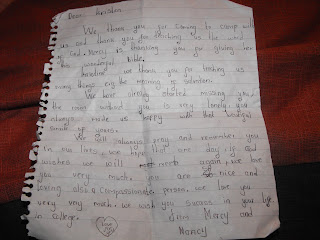 Dear Kristen
We thank you for coming to camp with
us and thank you for the word
of God. Mercy is thanking you for giving her
the wonderful bible.
we thank you for letting us
many things e.g the meaning is salvation.
We have already started missing you
the most and you is very lonely you
always made us happy with that beautiful
smile of yours.
We will always pray and remember you
in our lives, we hope that one day if god
wishes we will meet again, we love
you very much. you are so nice and
loving also a compassionate person. we love you
very very much. we wish you success in your life
in college.
from Mercy and
Nancy